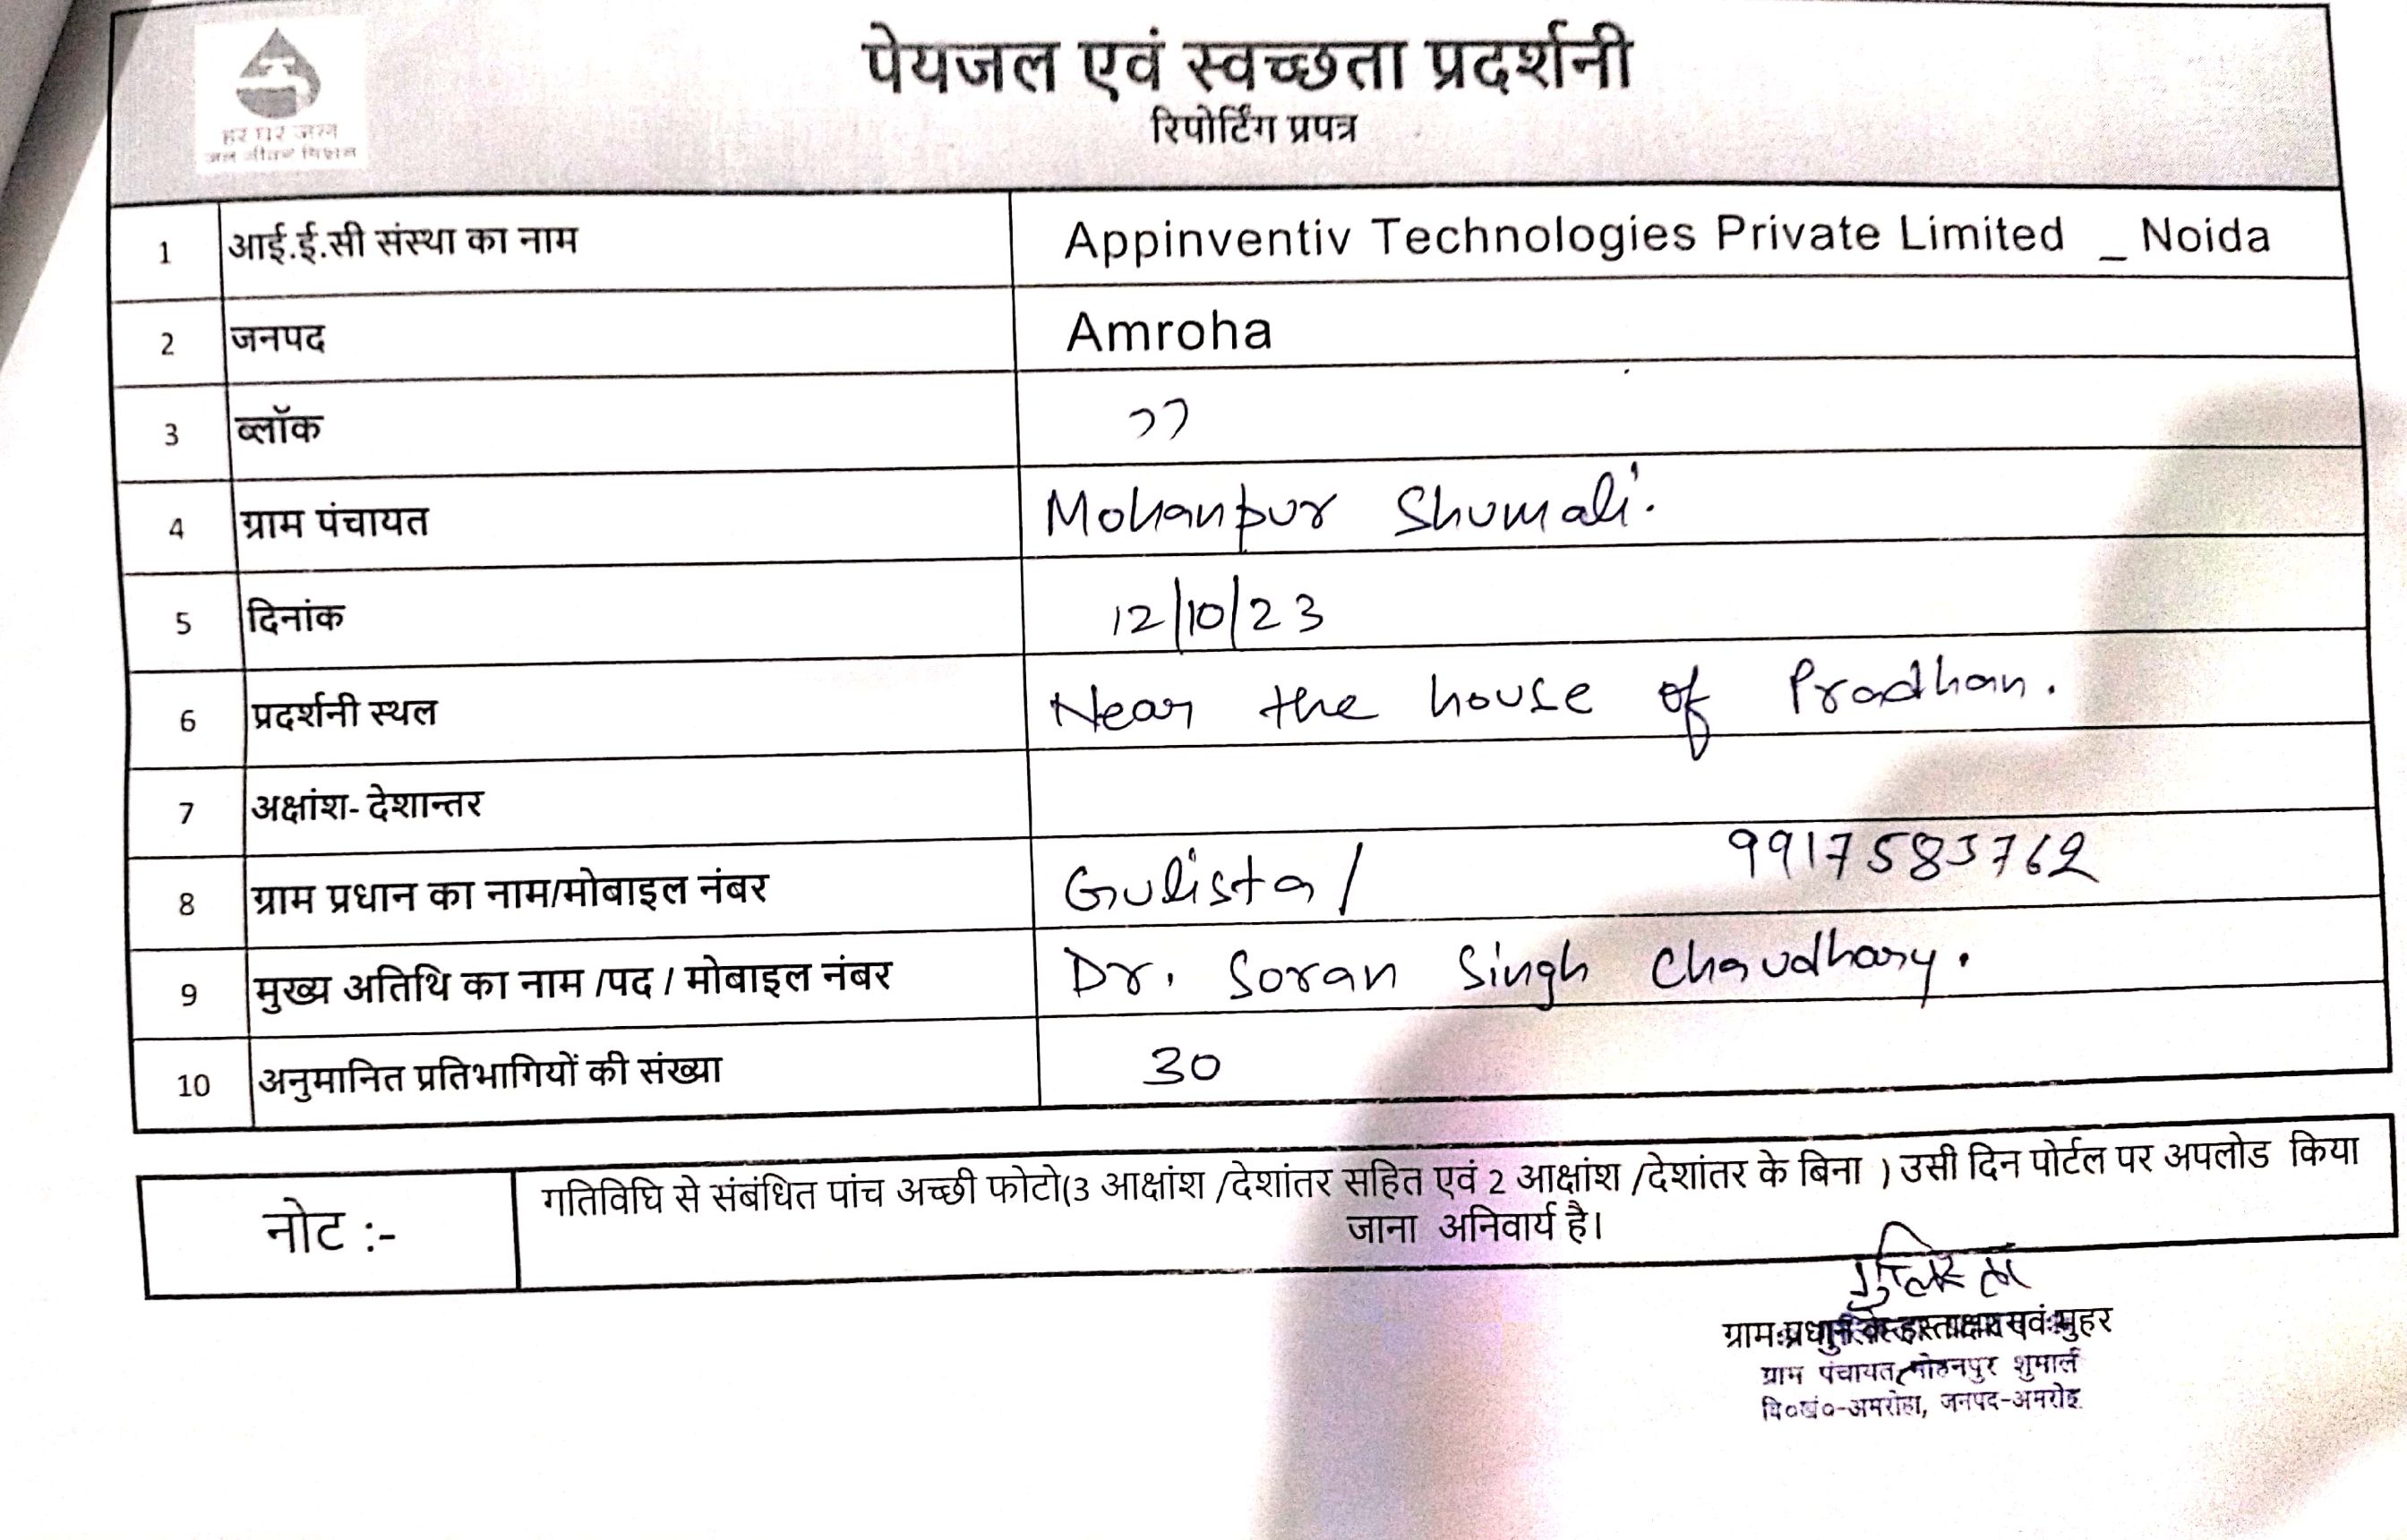 हर घर जल
जल जीवन मिशन
पेयजल एवं स्वच्छता प्रदर्शनी
रिपोर्टिंग प्रपत्र
1 आई.ई.सी संस्था का नाम Appinventiv Technologies Private Limited _ Noida
2 जनपद Amroha
3 ब्लॉक ''
4 ग्राम पंचायत Mohanpur Shumali.
5 दिनांक 12/10/23
6 प्रदर्शनी स्थल Near the house of Pradhan.
7 अक्षांश- देशान्तर
8 ग्राम प्रधान का नाम/मोबाइल नंबर Gulista / 9917583762
9 मुख्य अतिथि का नाम /पद / मोबाइल नंबर Dr. Soran Singh Chaudhary.
10 अनुमानित प्रतिभागियों की संख्या 30
नोट :- गतिविधि से संबंधित पांच अच्छी फोटो(3 आक्षांश /देशांतर सहित एवं 2 आक्षांश /देशांतर के बिना ) उसी दिन पोर्टल पर अपलोड किया
जाना अनिवार्य है।
ग्राम प्रधान के हस्ताक्षर एवं मुहर
ग्राम पंचायत-मोहनपुर शुमाली
वि०खं०-अमरोहा, जनपद-अमरोह